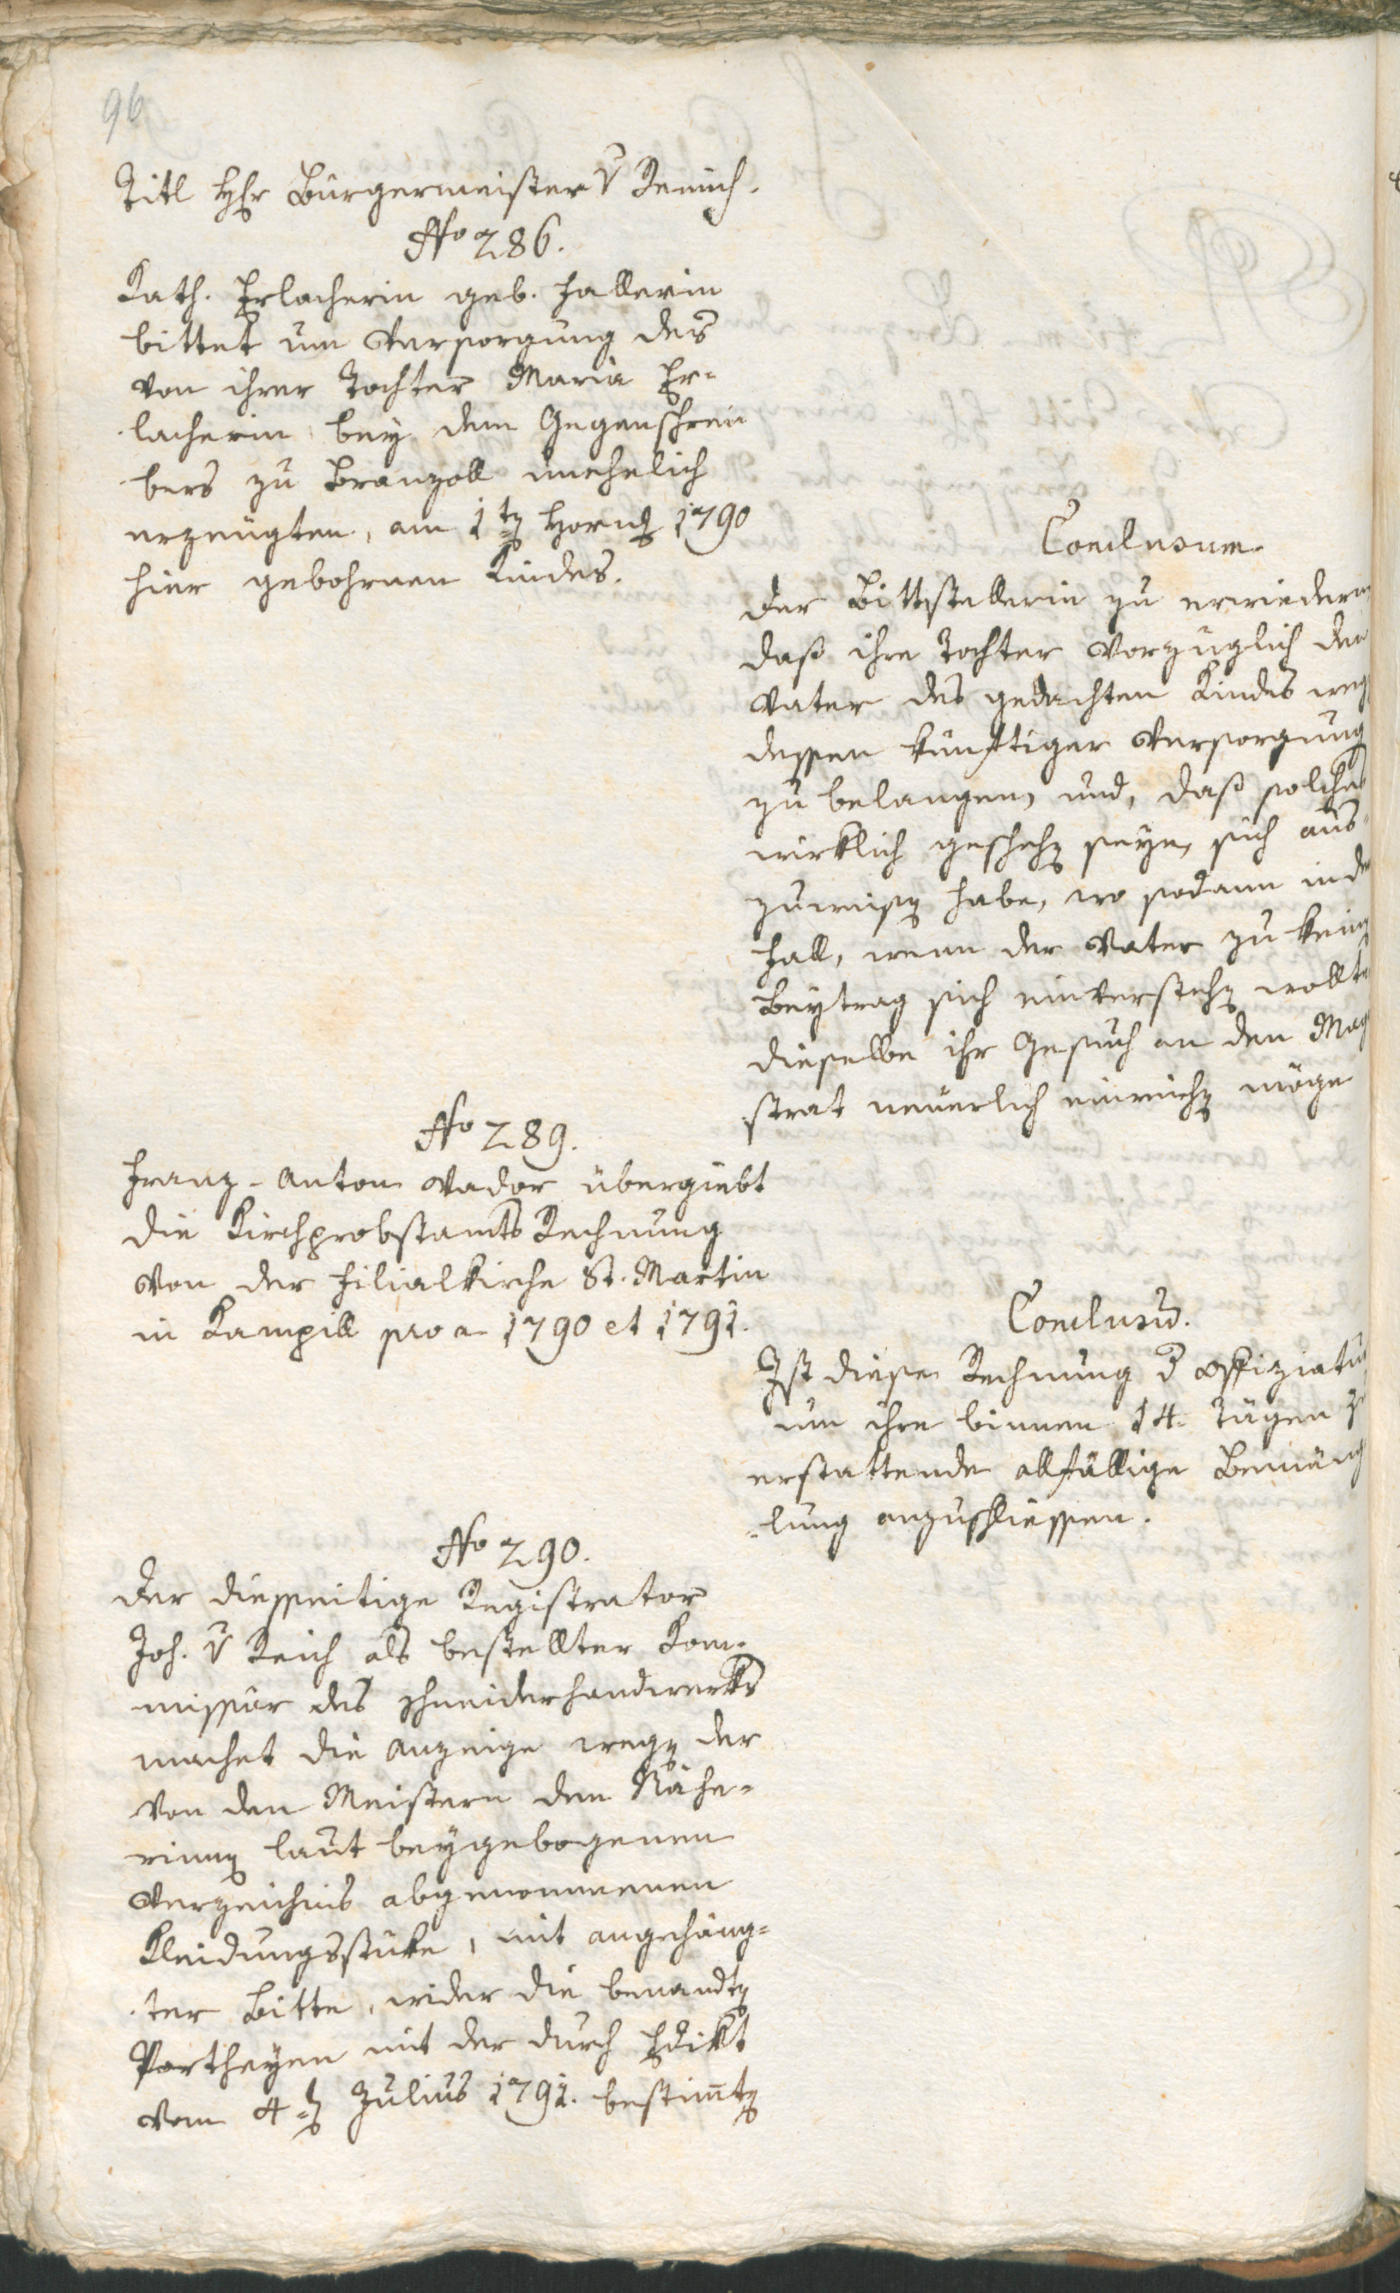 96
Titl Hhr Bürgermeister v Remich.
No 286.
Kath. Erlacherin geb. Hallerin
bittet um Versorgung des
von ihrer Tochter Maria Er-
lacherin bey dem Gegenschrei
bers zu Branzoll unehelich
erzeugten, am 1ten Horng 1790
hier gebohrnen Kindes.
Conclusum.
Der Bittstellerin zu erwiedern
daß ihre Tochter vorzüglich den
Vater des gedachten Kindes weg
dessen künftiger Versorgung
zu belangen, und, daß solches
wirklich geschehen seye, sich aus-
zuweisen habe, wo sodann in de
Fall, wenn der Vater zu keinen
Beytrag sich einverstehen wollte
dieselbe ihr Gesuch an den Mag
strat neuerlich einreichen möge
No 289.
Franz-Anton Vador übergiebt
die Kirchprobstamts Rechnung
von der Filialkirche St. Martin
in Kampill pro a 1790 et 1791.
Conclusum.
Ist diese Rechnung d Offiziatur
um ihre binnen 14. Tägen zu
erstattende allfällige Bemäng
-lung anzuschliessen.
No 290.
Der diesseitige Registrator
Joh. v Reich als bestellter Kom-
missär des Schneiderhandwerks
machet die Anzeige wegen der
von den Meistern den Nähe-
rinnen laut beygebogenen
Verzeichnis abgenommenen
Kleidungsstüke, mit angehäng-
ter Bitte, wider die benandten
Partheyen mit der durch Edikt
vom 4ten Julius 1791. bestimmten